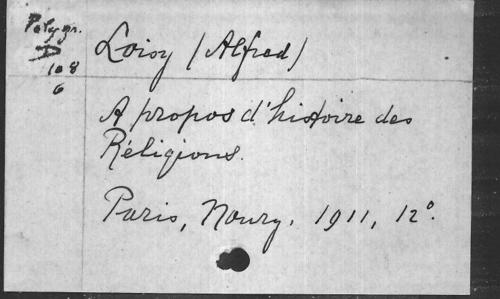 Polygr.
D
108
6
Loisy (Alfred)
A propos d'histoire des
Réligions.
Paris, Nourry. 1911, 12°.